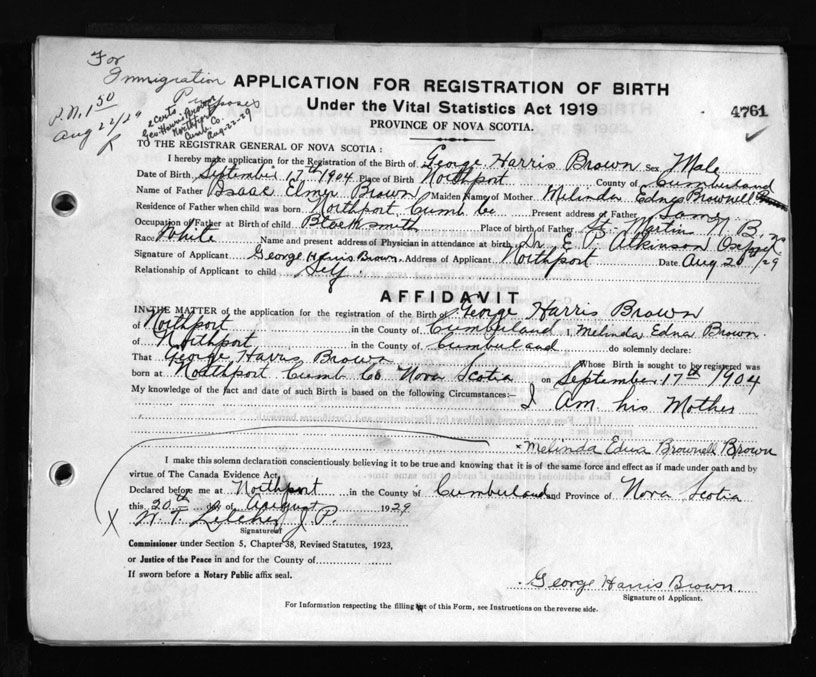 For
Immigration
Purposes
P.N. 1 50
Aug 22/29
2 Certs
Geo. Harris Brown
Northport
Cumb. Co.
Aug-22-29
APPLICATION FOR REGISTRATION OF BIRTH
Under the Vital Statistics Act 1919
PROVINCE OF NOVA SCOTIA.
4761
TO THE REGISTRAR GENERAL OF NOVA SCOTIA:
I hereby make application for the Registration of the Birth of George Harris Brown Sex Male
Date of Birth, September 17th 1904 Place of Birth Northport County of Cumberland
Name of Father Isaac Elmer Brown Maiden Name of Mother Melinda Edna Brownell
Residence of Father when child was born Northport, Cumb Co Present address of Father Same
Occupation of Father at Birth of child Blacksmith Place of birth of Father St Martin N. B.
Race White Name and present address of Physician in attendance at birth Dr. E. P. Atkinson
Signature of Applicant George Harris Brown. Address of Applicant Northport Date Aug 20th/29
Relationship of Applicant to child Self.
AFFIDAVIT
IN THE MATTER of the application for the registration of the Birth of George Harris Brown
of Northport in the County of Cumberland I, Melinda Edna Brown.
of Northport in the County of Cumberland do solemnly declare:
That George Harris Brown Whose Birth is sought to be registered was
born at Northport Cumb Co Nova Scotia on September 17th 1904
My knowledge of the fact and date of such Birth is based on the following Circumstances:—
I Am his Mother
x Melinda Edna Brownell Brown
I make this solemn declaration conscientiously believing it to be true and knowing that it is of the same force and effect as if made under oath and by
virtue of The Canada Evidence Act.
Declared before me at Northport in the County of Cumberland and Province of Nova Scotia
this 20th day of August 1929
X J. P.
Signature of
Commissioner under Section 5, Chapter 38, Revised Statutes, 1923,
or Justice of the Peace in and for the County of
If sworn before a Notary Public affix seal.
George Harris Brown.
Signature of Applicant.
For Information respecting the filling out of this Form, see Instructions on the reverse side.